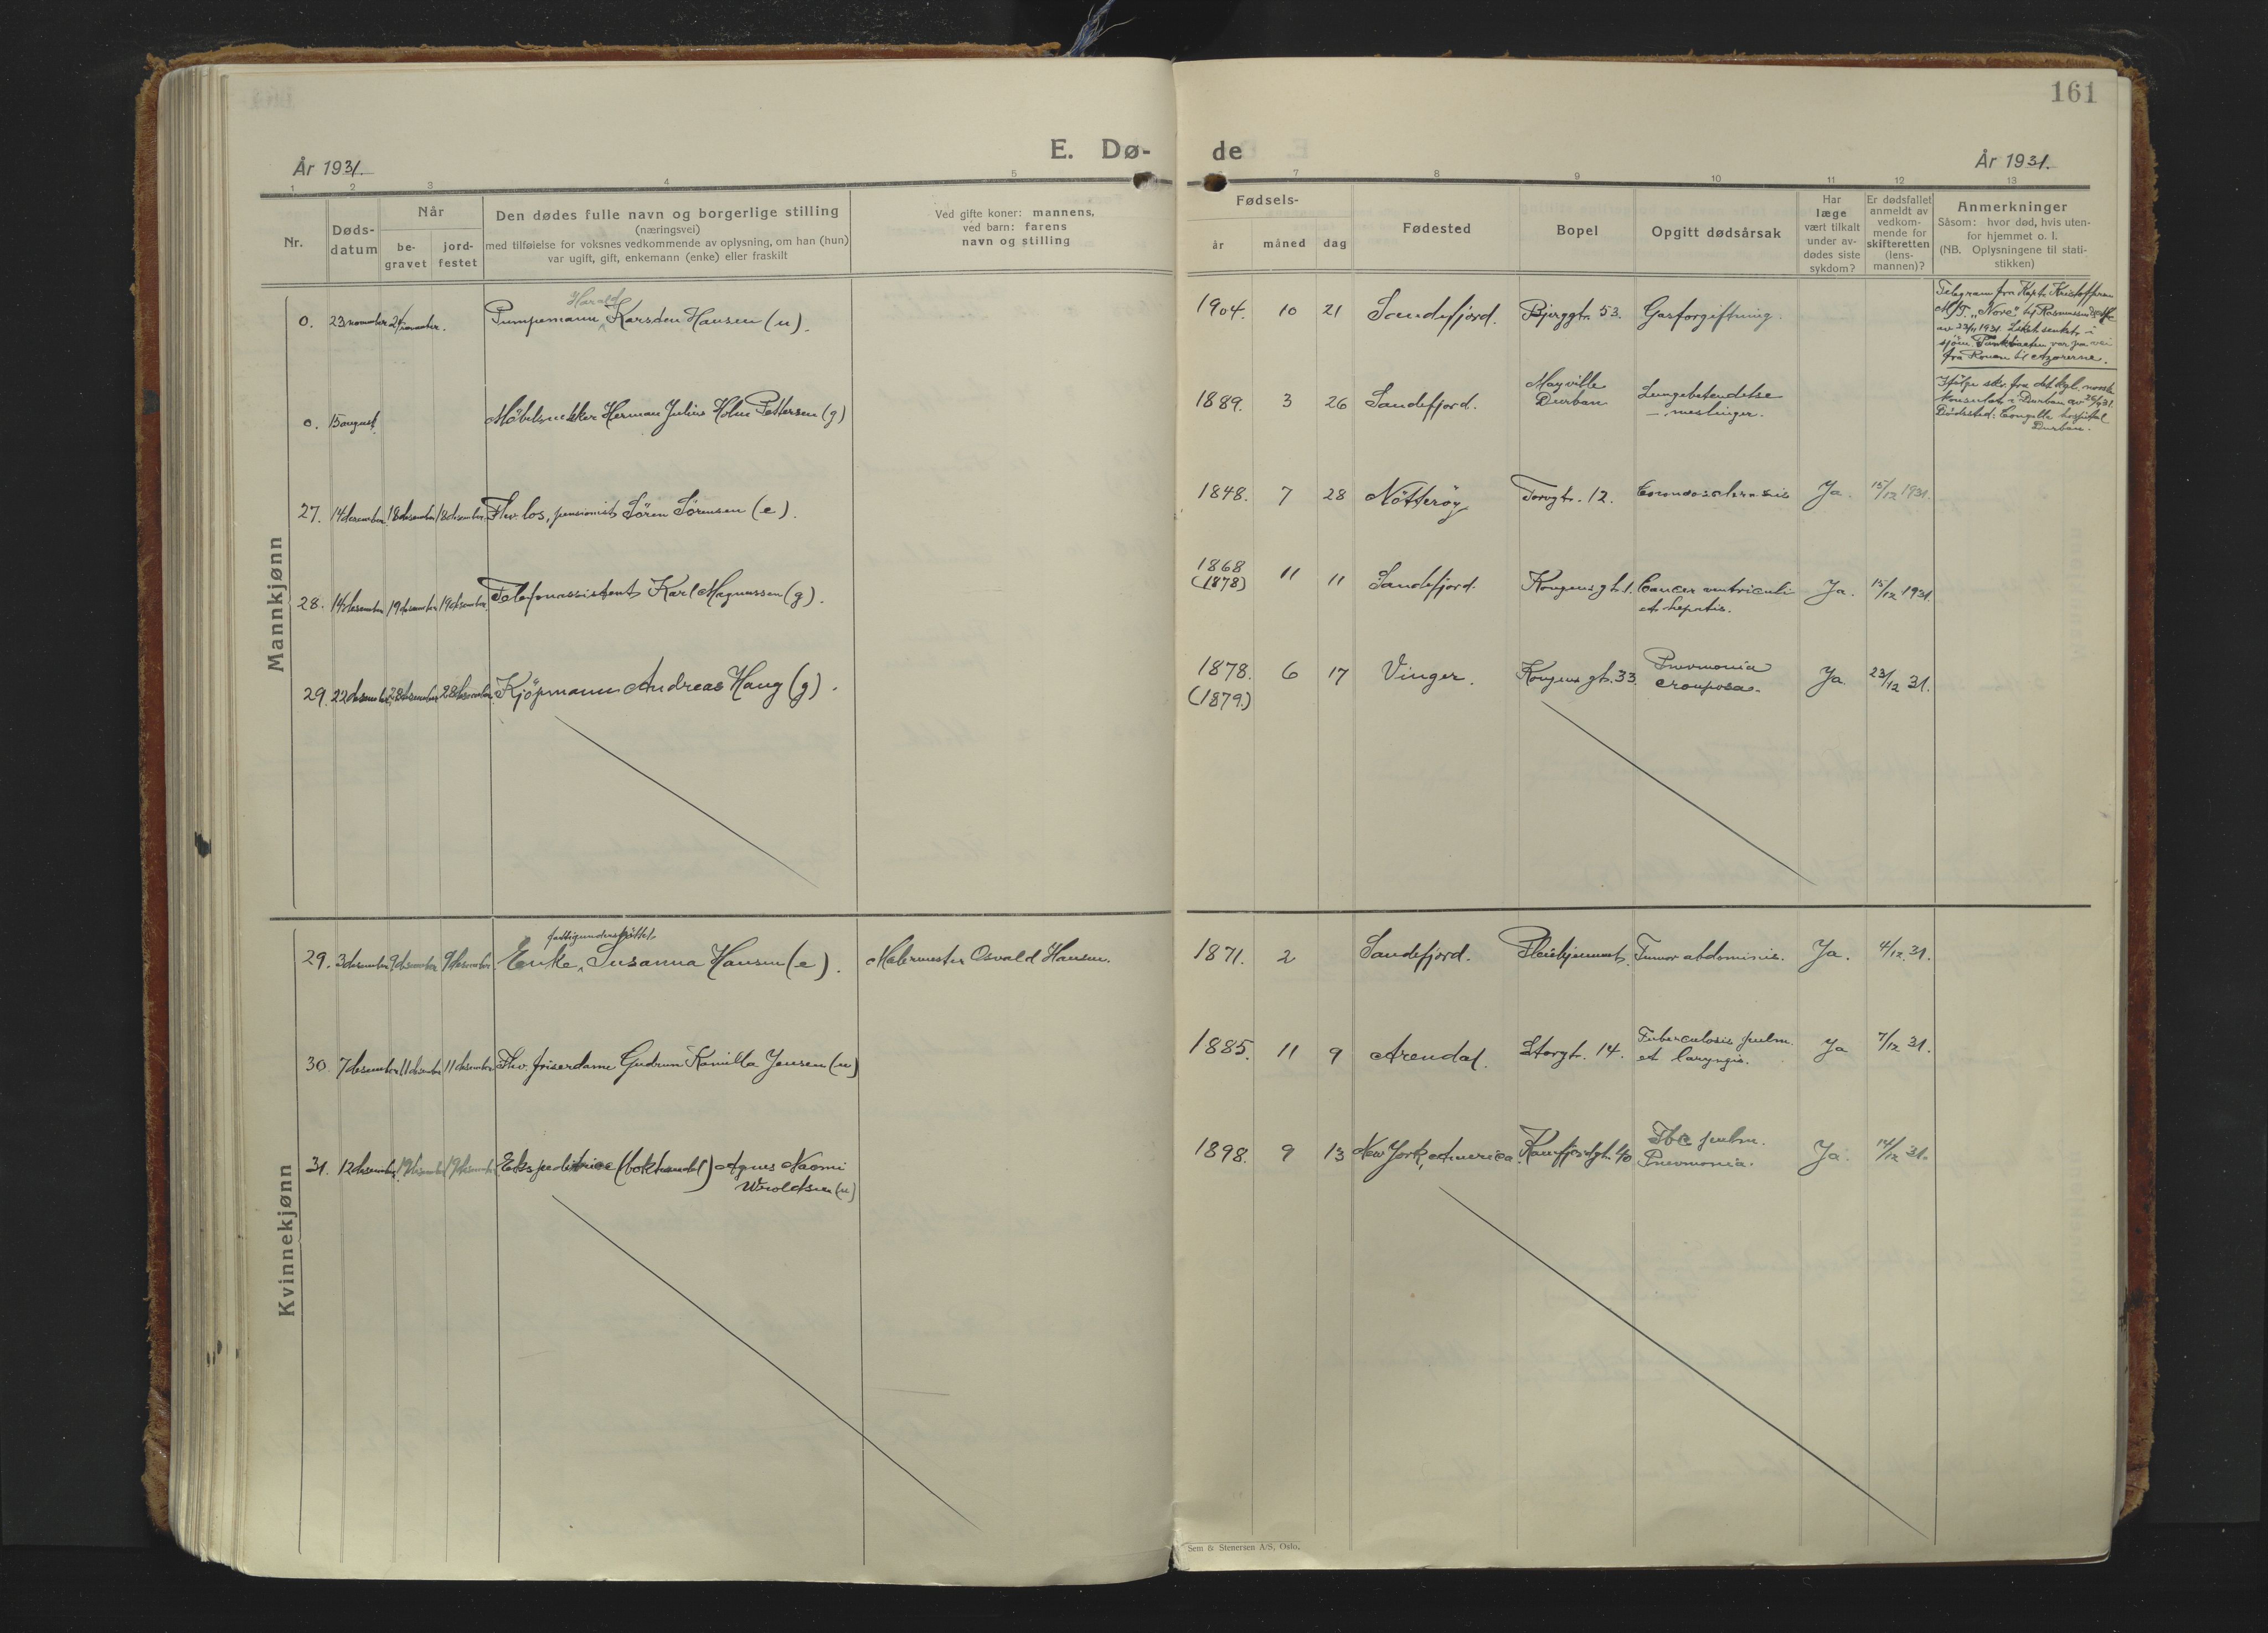 161
E. Dø-
de
År 1931.
År 1931.
1 2 3 4 5
7 8 9 10 11 12 13
Nr.
Døds-
datum
Når
be-
gravet
jord-
festet
Den dødes fulle navn og borgerlige stilling
(næringsvei)
med tilføielse for voksnes vedkommende av oplysning, om han (hun)
var ugift, gift, enkemann (enke) eller fraskilt
Ved gifte koner: mannens,
ved barn: farens
navn og stilling
Fødsels-
år måned dag
Fødested
Bopel
Opgitt dødsårsak
Har
læge
vært tilkalt
under av-
dødes siste
sykdom?
Er dødsfallet
anmeldt av
vedkom-
mende for
skifteretten
(lens-
mannen)?
Anmerkninger
Såsom: hvor død, hvis uten-
for hjemmet o. l.
(NB. Oplysningene til stati-
stikken)
Mannkjønn
Harald
0. 23 november november. Pumpemann Karsten Hansen (u). 1904. 10 21 Sandefjord. Bjerggt. 53. Gasforgiftning.
Telegram fra Kapt. Kristoffersen
M/T. "Nore"
av 23/11 1931. Liket senket i
sjøen. Tankbaaten var paa vei
fra Rouen til Azorerne.
0. 15 august Møbelsnekker Herman Julius Holm Pettersen (g) 1889. 3 26 Sandefjord. Mayville
Durban
Lungebetendelse
– meslinger.
Ifølge skr. fra det kgl. norske
Konsulat i Durban av 26/9 31.
Dødssted: Congella hospital
Durban.
27. 14 desember 18 desember 18 desember Fhv. los, pensionist Søren Sørensen (e). 1848. 7 28 Nøtterøy Torvgt. 12. Ja. 15/12 1931.
28. 14 desember 19 desember 19 desember Telefonassistent Karl Magnussen (g). 1868
(1878) 11 11 Sandefjord. Kongensgt. 1. Cancer ventriculi
et hepatis. Ja. 15/12 1931.
29. 22 desember 28 desember 28 desember Kjøpmann Andreas Haug (g). 1878.
(1879.) 6 17 Vinger. Kongens gt. 33. Pnevmonia
crouposa. Ja. 23/12 31.
Kvinnekjønn
fattigunderstøttet
29. 3 desember 9 desember 9 desember Enke, Susanna Hansen (e). Malermester Osvald Hansen. 1871. 2 Sandefjord. Pleiehjemmet. Tumor abdominis. Ja. 4/12 31.
30. 7 desember 11 desember 11 desember Fhv. friserdame Gudrun Kamilla Jensen (u) 1885. 11 9 Arendal. Storgt. 14. Tuberculosis pulm.
et laryngis. Ja 7/12 31.
31. 12 desember 19 desember 19 desember Ekspeditrice (bokhandel) Agnes Naomi
Woldsen (u) 1898. 9 13 New York, America. Kamfjordgt. 40 Tbc pulm.
Pnevmonia. Ja. 14/12 31.
Sem & Stenersen A/S, Oslo.